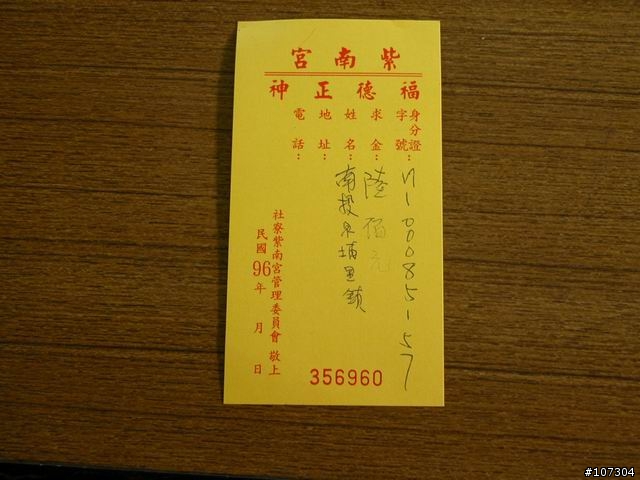 紫南宮
福德正神
身分證字號：M100085157
求金：陸佰元
姓名：
地址：南投縣埔里鎮
電話：
社寮紫南宮管理委員會 敬上
民國96年 月 日
356960
#107304